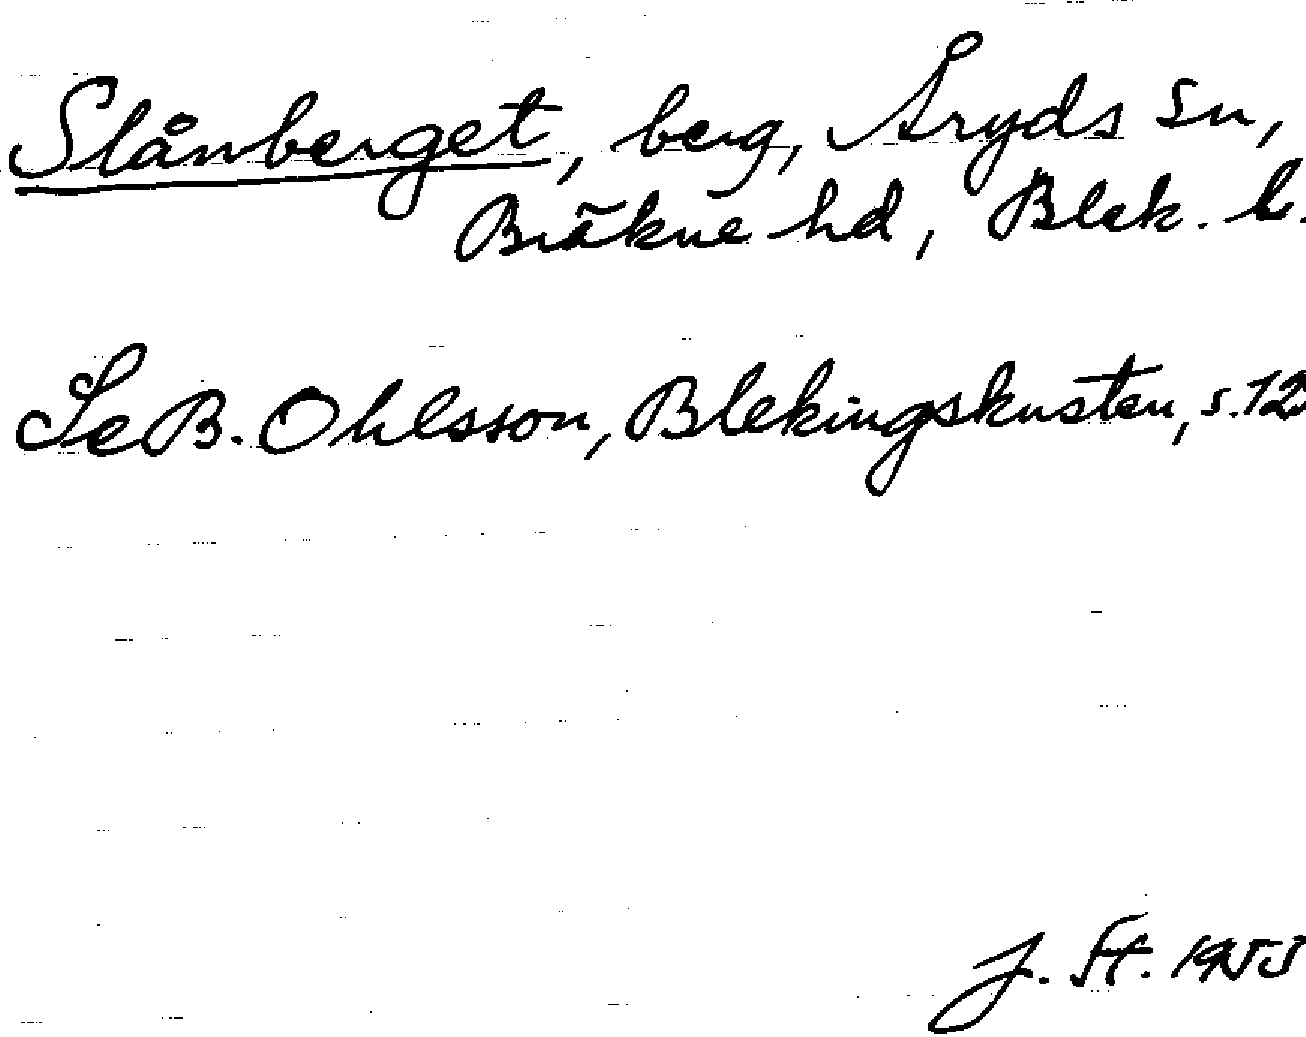 Slånberget, berg, Åryds sn,
Bräkne hd, Blek. l.
Se B. Ohlsson, Blekingskusten, s. 12
J. St. 1955